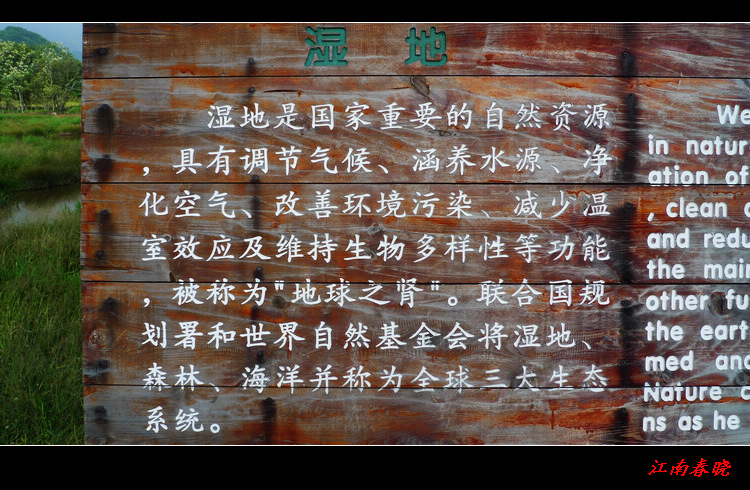 湿 地
湿地是国家重要的自然资源
，具有调节气候、涵养水源、净
化空气、改善环境污染、减少温
室效应及维持生物多样性等功能
，被称为"地球之肾"。联合国规
划署和世界自然基金会将湿地、
森林、海洋并称为全球三大生态
系统。
We
in natur
ation of
, clean
and redu
the main
other fu
the eart
med and
Nature c
ns as he
江南春晓